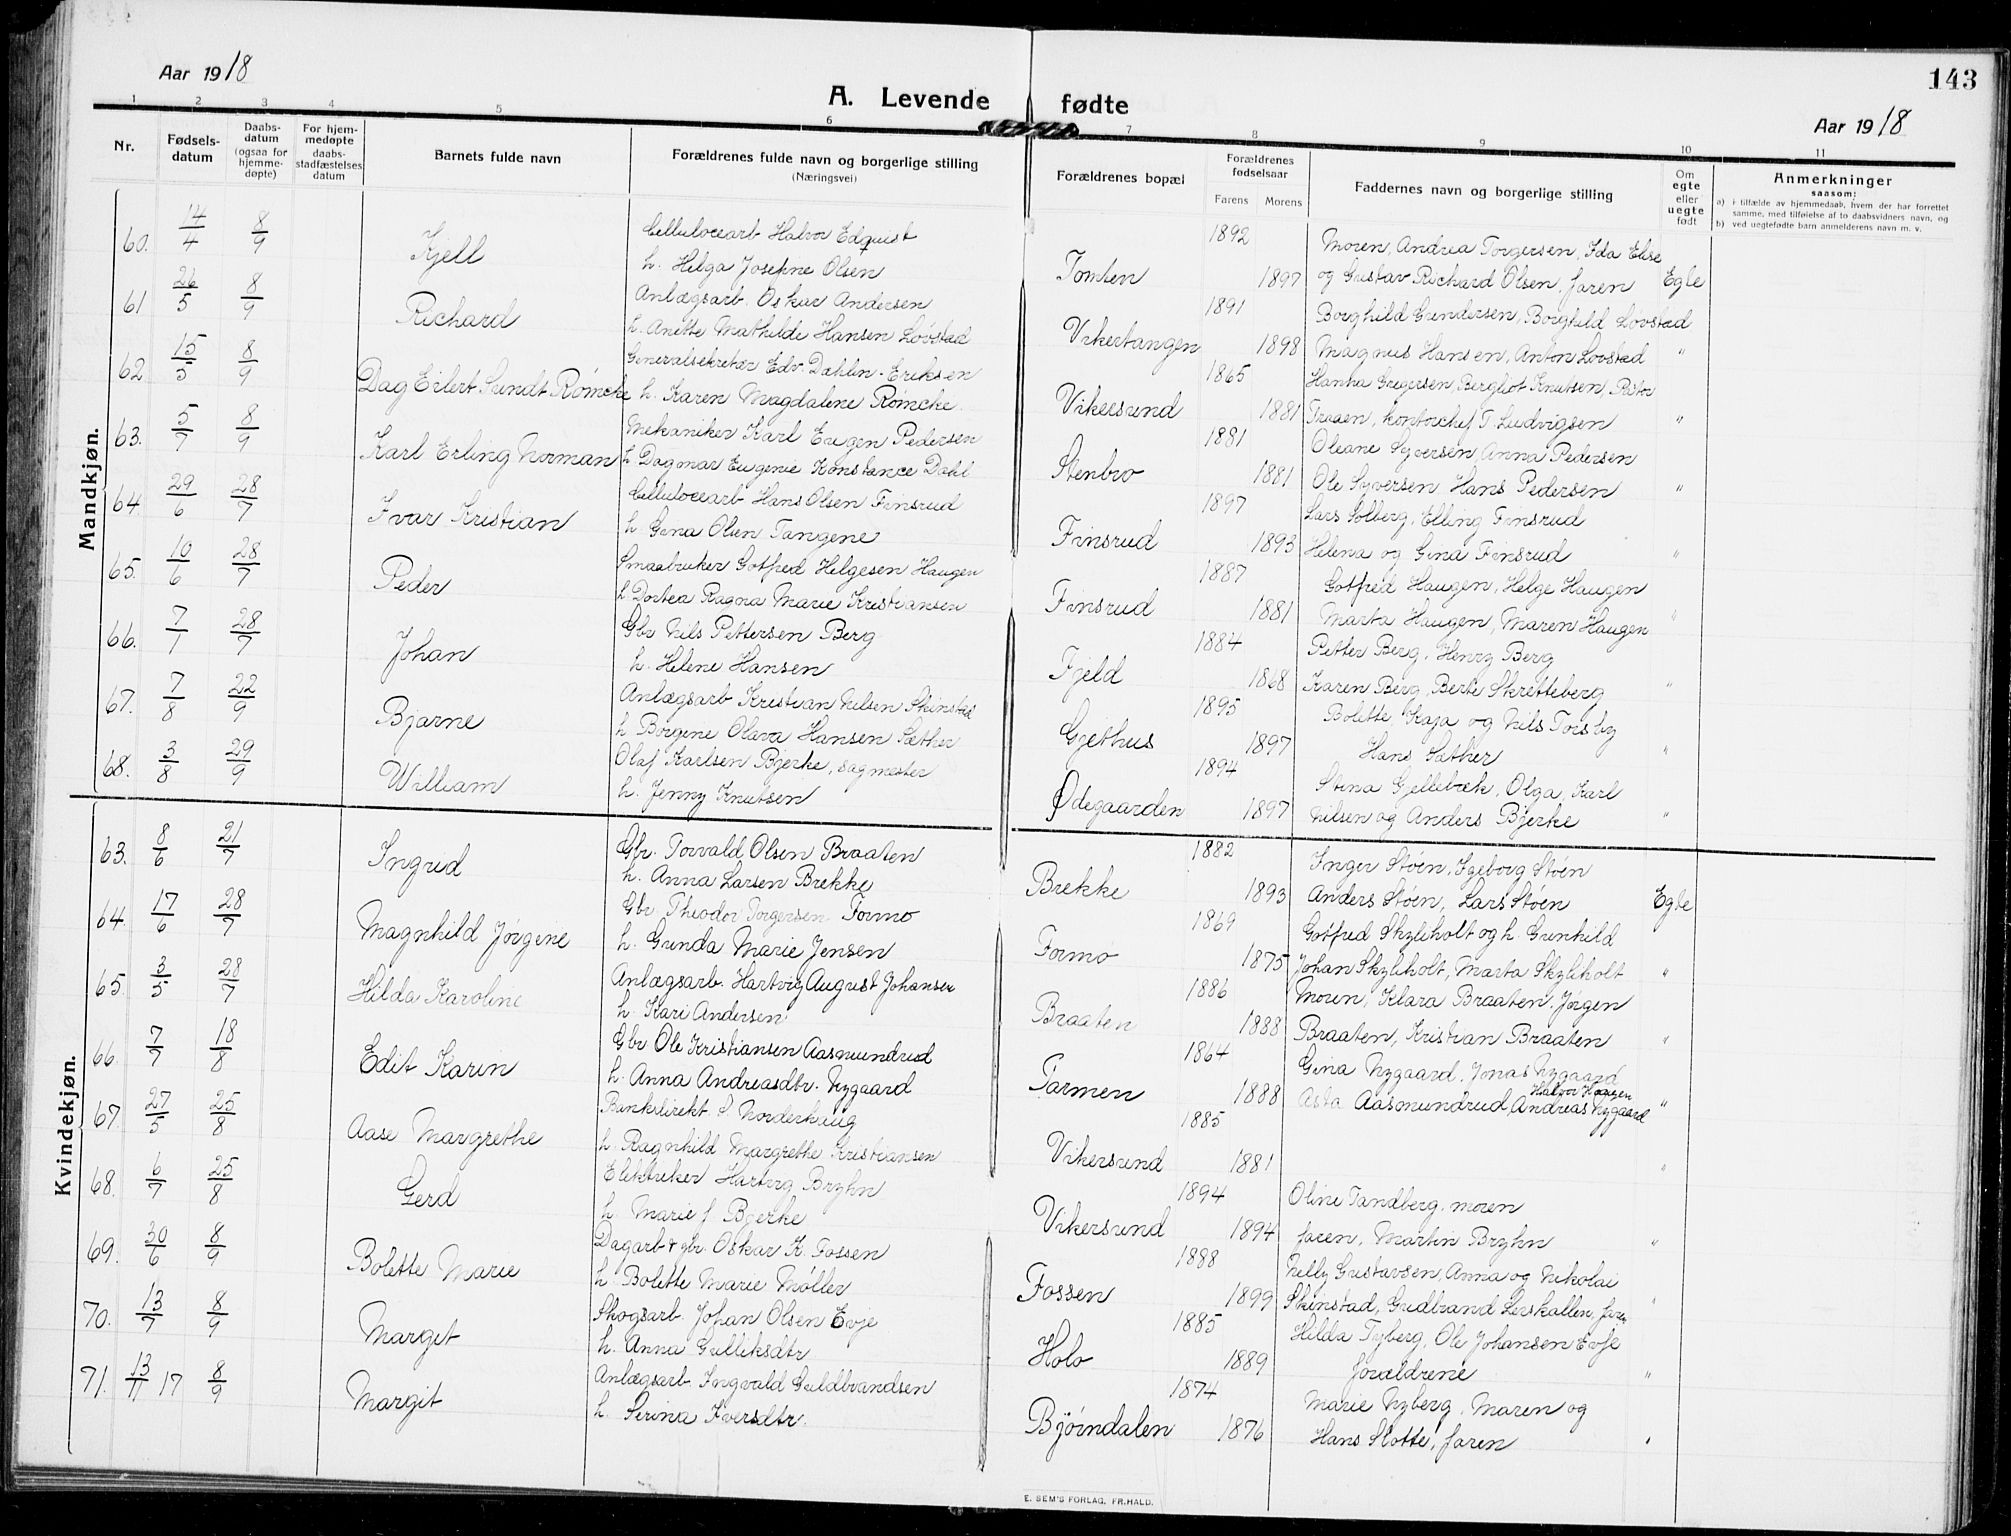 Aar 1918
A. Levende fødte
143
Aar 1918
1 2 3 4 5 6 7 8 9 10 11
Nr.
Fødselsdatum
Daabsdatum (ogsaa for hjemmedøpte)
For hjemmedøpte daabsstadfæstelses datum
Barnets fulde navn
Forældrenes fulde navn og borgerlige stilling (Næringsvei)
Forældrenes bopæl
Forældrenes fødselsaar
Farens Morens
Faddernes navn og borgerlige stilling
Om egte eller uegte født
Anmerkninger
saasom:
a) i tilfælde av hjemmedaab, hvem der har forrettet samme, med tilføielse af to daabsvidners navn, og
b) ved uegtefødte barn anmelderens navn m. v.
Mandkjøn.
60. 14/4 8/9 Kjell Cellulocearb Halvor Edquist 1892 Moren, Andrea Torgersen, Ida Elise
h. Helga Josefine Olsen Tomten 1897 og Gustav Richard Olsen, faren Egte
61 26/5 8/9 Richard Anlægsarb. Oskar Andersen 1891 Borghild Gundersen, Borghild Lovstad
h. Anette Mathilde Hansen Lovstad Vikertangen 1898 Magnus Hansen, Anton Lovstad "
62 15/5 8/9 Dag Eilert Sundt Römcke Generalsekretær Edv. Dæhlin-Eriksen 1865 Hanna Gregersen, Bergliot Knutsen,
h. Karen Magdalene Römcke. Vikersund 1881 Traaen, kontorchef T. Ludvigsen "
63. 5/7 8/9 Karl Erling Norman Mekaniker Karl Eugen Pedersen 1881 Oleane Syversen, Anna Pedersen
h Dagmar Eugenie Konstance Dahl Stenbro 1881 Ole Syversen Hans Pedersen "
64 29/6 28/7 Ivar Kristian Cellulocearb Hans Olsen Finsrud 1897 Lars Solberg, Elling Finsrud
h Gina Olsen Tangene Finsrud 1893 Helena og Gina Finsrud "
65. 10/6 28/7 Peder Smaabruker Gotfred Helgesen Haugen 1887 Gotfred Haugen, Helge Haugen
h. Dortea Ragna Marie Kristiansen Finsrud 1881 Marta Haugen, Maren Haugen "
66. 7/1 28/7 Johan Gbr Nils Pettersen Berg 1884 Petter Berg, Henry Berg
h. Helene Hansen Fjeld 1868 Karen Berg, Berte Skretteberg "
67. 7/8 22/9 Bjarne Anlægsarb Kristian Nilsen Skinstad 1895 Bolette, Kaja og Nils Torsby
h Borgene Olava Hansen Sæther Gjethus 1897 Hans Sæther "
68. 3/8 29/9 William Olaf Karlsen Bjerke, sagmester 1894 Stina Gjellebæk, Olga, Karl
h. Jenny Knutsen Ødegaarden 1897 Nilsen og Anders Bjerke "
Kvindekjøn.
63. 8/6 21/7 Ingrid Gbr. Torvald Olsen Braaten 1882 Inger Støen, Igeborg Støen
h. Anna Larsen Brekke Brekke 1893 Anders Støen, Lars Støen Egte
64. 17/6 28/7 Magnhild Jørgine Gbr Theodor Torgersen Formo 1869 Gotfred Skyliholt og h. Gunhild
h. Gunda Marie Jensen Formo 1875 Johan Skyliholt, Marta Skyliholt "
65. 3/5 28/7 Hilda Karoline Anlægsarb. Hartvig August Johansen 1886 Moren, Klara Braaten, Jørgen
h. Kari Andersen Braaten 1888 Braaten, Kristian Braaten "
66. 7/7 18/8 Edit Karin Gbr Ole Kristiansen Aasmundrud 1864 Gina Nygaard, Jonas Nygaard
h. Anna Andreasdtr. Nygaard Tarmen 1888 Asta Aasmundrud, Andreas Nygaard "
Halvor Hagesen
67. 27/5 25/8 Aase Margrethe Bankdirekt. P. Norderhaug 1885
h. Ragnhild Margrethe Kristiansen Vikersund 1881 "
68. 6/7 25/8 Gerd Elektriker Hartvig Bryhn 1894 Oline Tandberg, moren
h. Marie f Bjerke Vikersund 1894 faren, Martin Bryhn "
69. 30/6 8/9 Bolette Marie Dagarb & gbr. Oskar K. Fossen 1888 Nelly Gustavsen, Anna og Nikolai
h. Bolette Marie Møller Fossen 1899 Skinstad, Gudbrand Lerskallen, faren "
70. 13/7 8/9 Margit Skogsarb. Johan Olsen Evje 1885 Hilda Tyberg, Ole Johansen Evje
h. Anna Gulliksdtr Holo 1889 forældrene "
71. 13/11 17 8/9 Margit Anlægsarb. Ingvald Guldbrandsen 1874 Marie Nyberg, Maren og
h. Serina Iversdtr. Bjørndalen 1876 Hans Slotte, faren "
E. SEM'S FORLAG, FR.HALD.